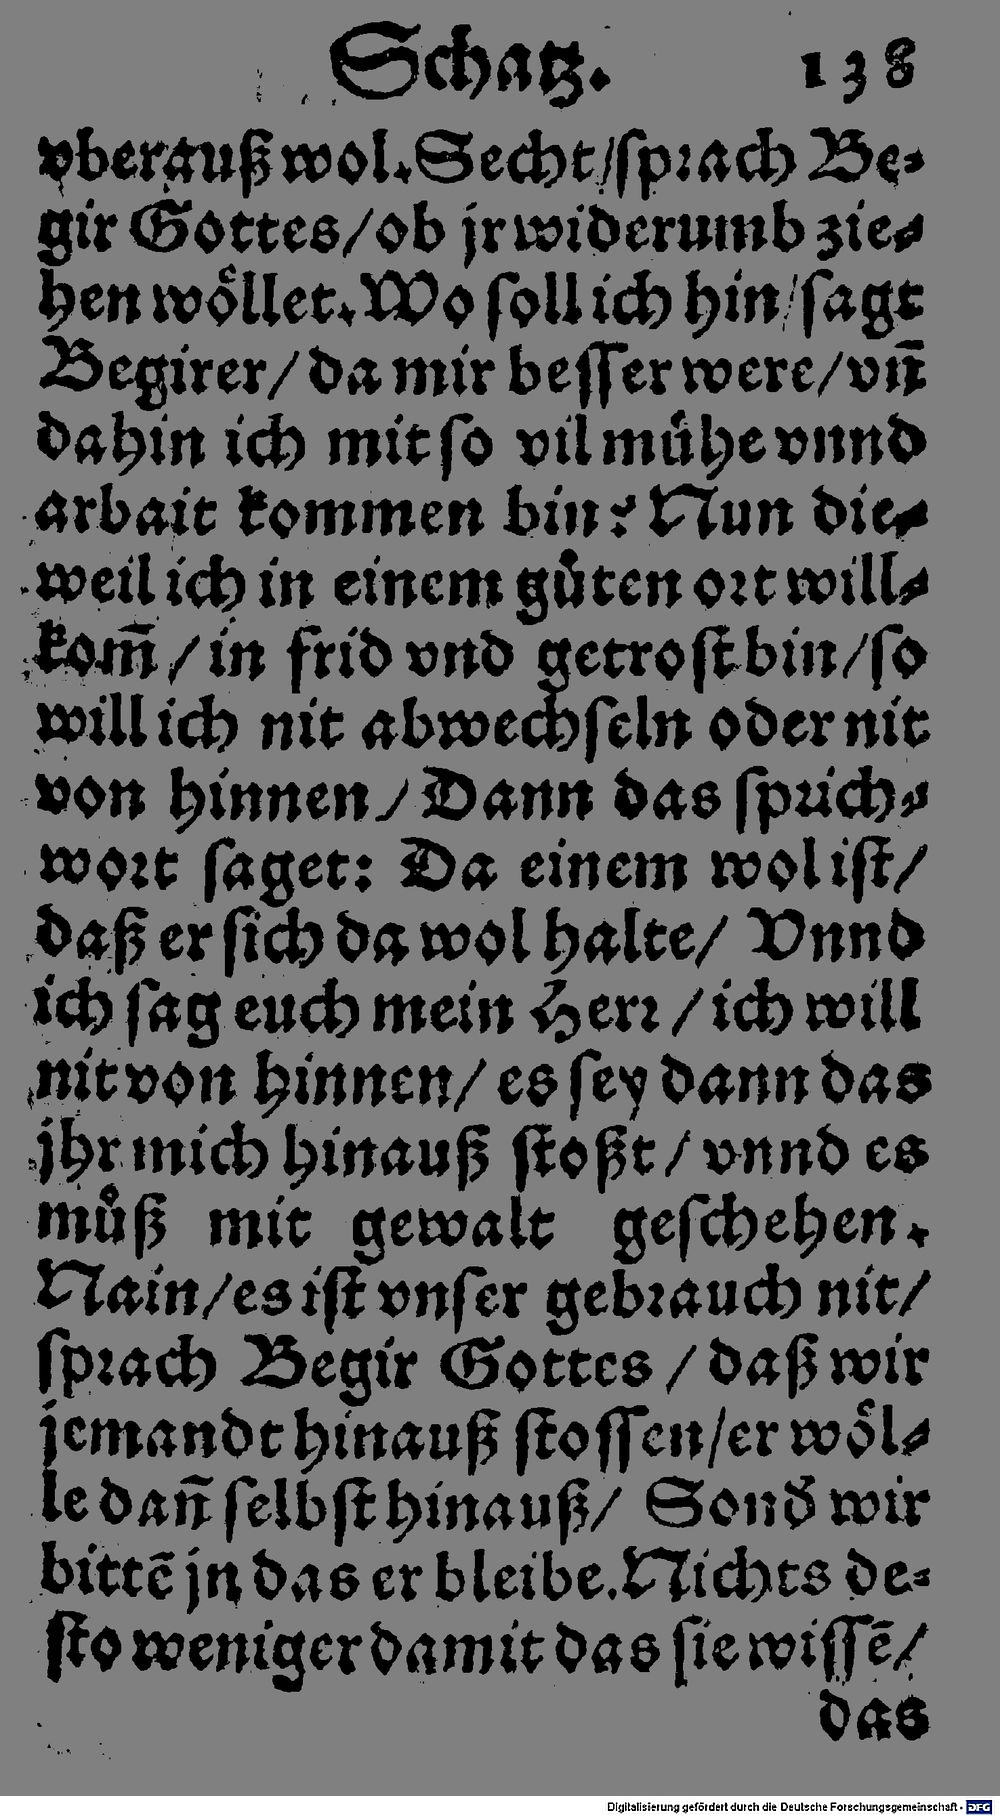 Schatz. 138
vberauß wol. Secht/ sprach Be-
gir Gottes/ ob jr widerumb zie-
hen wöllet. Wo soll ich hin/ sagt
Begirer/ da mir besser were/ vñ
dahin ich mit so vil mühe vnnd
arbait kommen bin? Nun die-
weil ich in einem gůten ort will-
kom̃/ in frid vnd getrost bin/ so
will ich nit abwechseln oder nit
von hinnen/ Dann das sprich-
wort saget: Da einem wol ist/
daß er sich da wol halte/ Vnnd
ich sag euch mein Herr/ ich will
nit von hinnen/ es sey dann das
jhr mich hinauß stoßt/ vnnd es
můß mit gewalt geschehen.
Nain/ es ist vnser gebrauch nit/
sprach Begir Gottes/ daß wir
jemandt hinauß stossen/ er wöl-
le dañ selbst hinauß/ Sond̕ wir
bittẽ jn das er bleibe. Nichts de-
sto weniger damit das sie wissẽ/
das
Digitalisierung gefördert durch die Deutsche Forschungsgemeinschaft - DFG